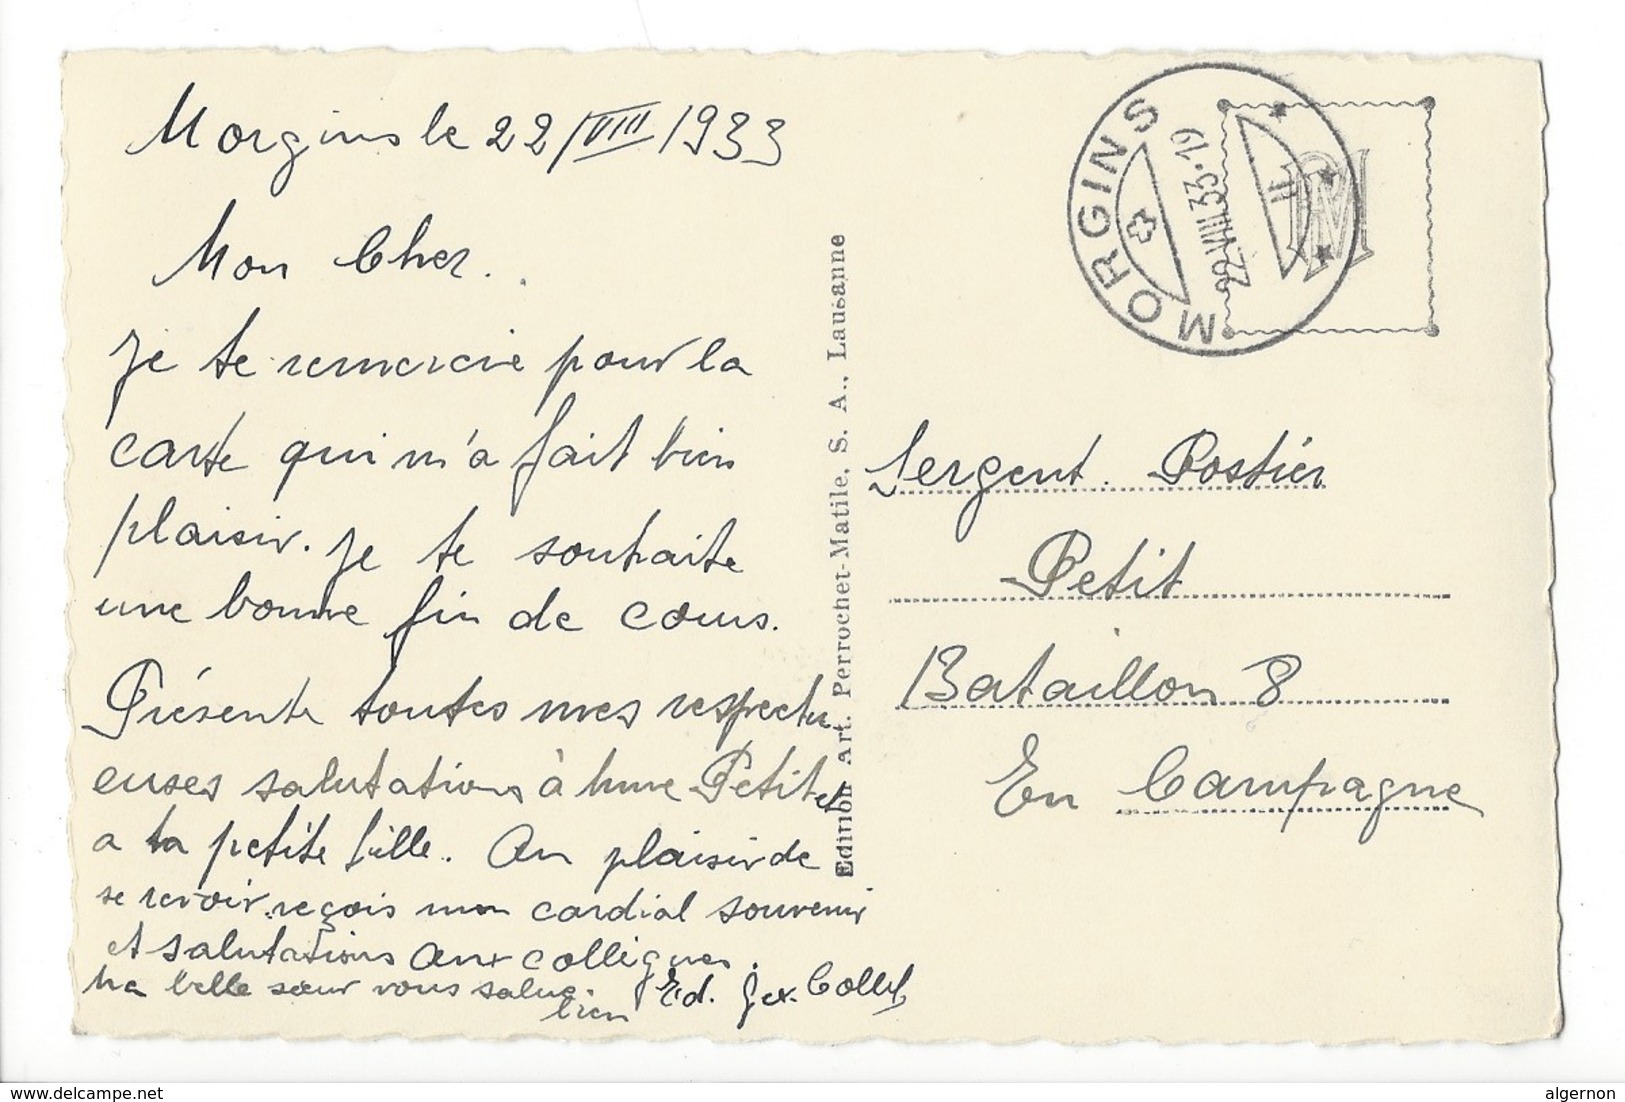 Morgins le 22/VIII/1933
Mon Cher.
Je te remercie pour la
carte qui m'a fait bien
plaisir. Je te souhaite
une bonne fin de cours.
Présente toutes mes respectu
euses salutations à Mme Petit et
a ta petite fille. Au plaisir de
se revoir, reçois mon cordial souvenir
et salutations aux collègues.
Ma belle sœur vous salue
bien
Ed. Gex. Collet
Edition Art. Perrochet-Matile, S. A., Lausanne
MORGINS
22.VIII.33-19
PM
Sergent. Postier
Petit
Bataillon 8
En Campagne
www.delcampe.net
algernon